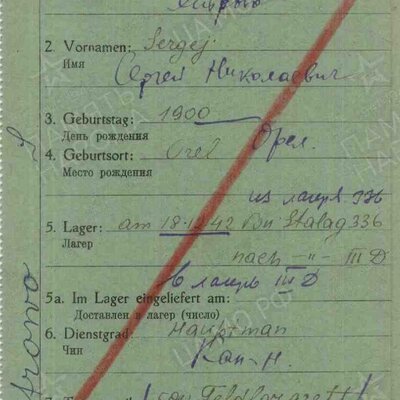 2. Vornamen: Sergej
Имя Сергей Николаевич
3. Geburtstag: 1900
День рождения
Орел.
4. Geburtsort: Orel
Место рождения
из лагеря 336
5. Lager: am 18.12.42 Stalag 336
Лагерь
nach -"- III D
в лагерь III D
5a. Im Lager eingeliefert am:
Доставлен в лагерь (число)
6. Dienstgrad: Hauptman
Чин Кап-н.